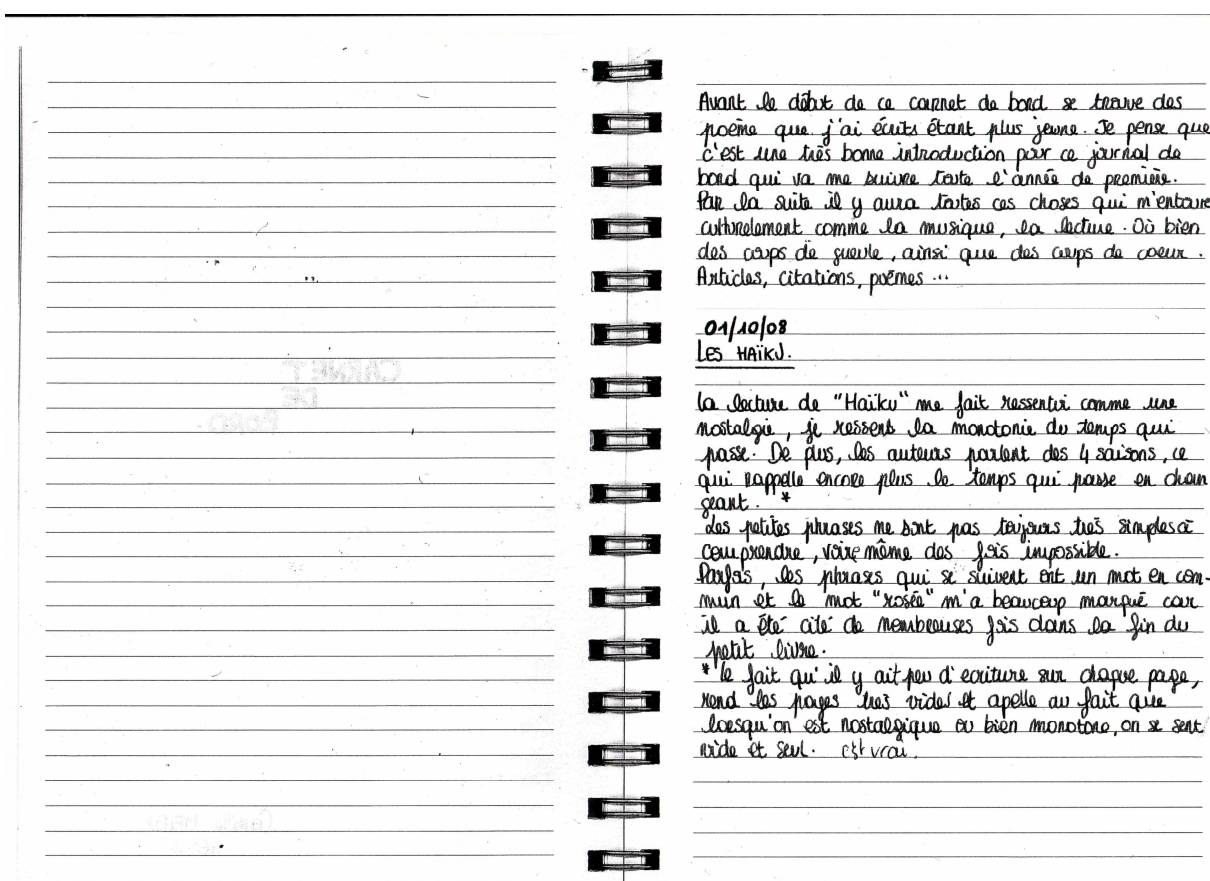 CARNET
DE
BORD
Avant le début de ce carnet de bord se trouve des
poème que j'ai écrits étant plus jeune. Je pense que
c'est une très bonne introduction pour ce journal de
bord qui va me suivre toute l'année de première.
Par la suite il y aura toutes ces choses qui m'entoure
culturelement comme la musique, la lecture. Où bien
des coups de gueule, ainsi que des coups de coeur.
Articles, citations, poèmes ...
01/10/08
LES HAÏKU.
La lecture de "Haïku" me fait ressentir comme une
nostalgie, je ressens la monotonie du temps qui
passe. De plus, les auteurs parlent des 4 saisons, ce
qui rappelle encore plus le temps qui passe en chan
geant. *
Les petites phrases ne sont pas toujours très simples à
comprendre, voire même des fois impossible.
Parfois, les phrases qui se suivent ont un mot en com-
mun et le mot "rosée" m'a beaucoup marqué car
il a été cité de nombreuses fois dans la fin du
petit livre.
* le fait qu'il y ait peu d'ecriture sur chaque page,
rend les pages très vides et apelle au fait que
lorsqu'on est nostalgique ou bien monotone, on se sent
vide et seul. c'est vrai.